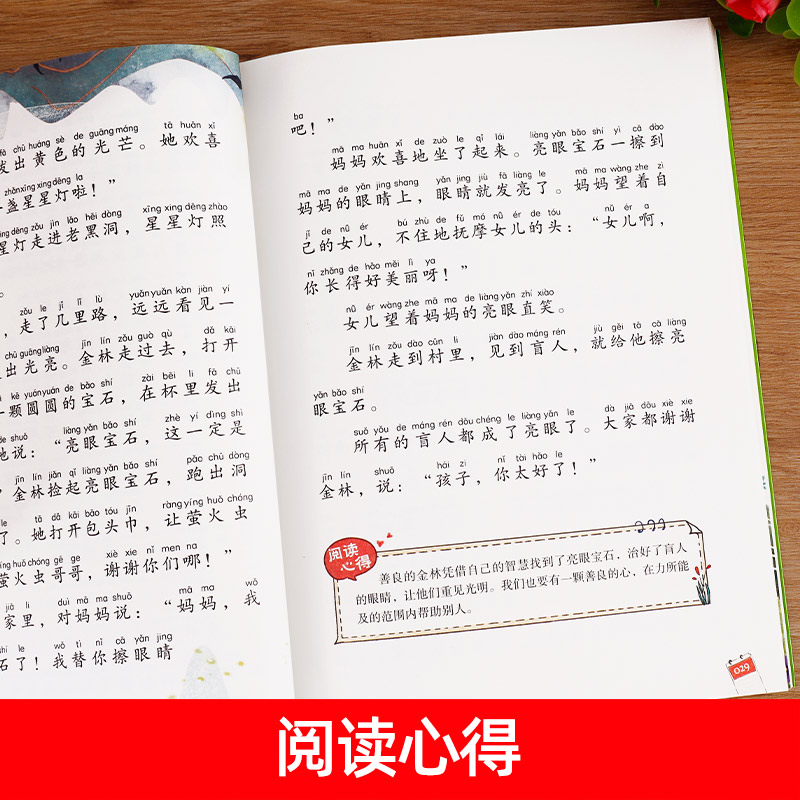 fā chū huáng sè de guāng máng tā huān xǐ
发出黄色的光芒。她欢喜
zhǎn xīng xing dēng la
盏星星灯啦！”
dēng zǒu jìn lǎo hēi dòng xīng xing dēng zhào
星灯走进老黑洞，星星灯照
。
zǒu le jǐ lǐ lù yuǎn yuǎn kàn jiàn yí
，走了几里路，远远看见一
chū guāng liàng jīn lín zǒu guò qù dǎ kāi
出光亮。金林走过去，打开
kē yuán yuán de bǎo shí zài bēi lǐ fā chū
一颗圆圆的宝石，在杯里发出
de shuō liàng yǎn bǎo shí zhè yí dìng shì
地说：“亮眼宝石，这一定是
jīn lín jiǎn qǐ liàng yǎn bǎo shí pǎo chū dòng
金林捡起亮眼宝石，跑出洞
le tā dǎ kāi bāo tóu jīn ràng yíng huǒ chóng
了。她打开包头巾，让萤火虫
yíng huǒ chóng gē ge xiè xie nǐ men na
萤火虫哥哥，谢谢你们哪！”
jiā li duì mā ma shuō mā ma wǒ
家里，对妈妈说：“妈妈，我
shí le wǒ tì nǐ cā yǎn jing
石了！我替你擦眼睛
ba
吧！”
mā ma huān xǐ de zuò le qǐ lái liàng yǎn bǎo shí yì cā dào
妈妈欢喜地坐了起来。亮眼宝石一擦到
mā ma de yǎn jing shang yǎn jing jiù fā liàng le mā ma wàng zhe zì
妈妈的眼睛上，眼睛就发亮了。妈妈望着自
jǐ de nǚ ér bú zhù de fǔ mó nǚ ér de tóu nǚ ér a
己的女儿，不住地抚摩女儿的头：“女儿啊，
nǐ zhǎng de hǎo měi lì ya
你长得好美丽呀！”
nǚ ér wàng zhe mā ma de liàng yǎn zhí xiào
女儿望着妈妈的亮眼直笑。
jīn lín zǒu dào cūn li jiàn dào máng rén jiù gěi tā cā liàng
金林走到村里，见到盲人，就给他擦亮
yǎn bǎo shí
眼宝石。
suǒ yǒu de máng rén dōu chéng le liàng yǎn le dà jiā dōu xiè xie
所有的盲人都成了亮眼了。大家都谢谢
jīn lín shuō hái zi nǐ tài hǎo le
金林，说：“孩子，你太好了！”
阅读
心得
善良的金林凭借自己的智慧找到了亮眼宝石，治好了盲人
的眼睛，让他们重见光明。我们也要有一颗善良的心，在力所能
及的范围内帮助别人。
029
阅读心得